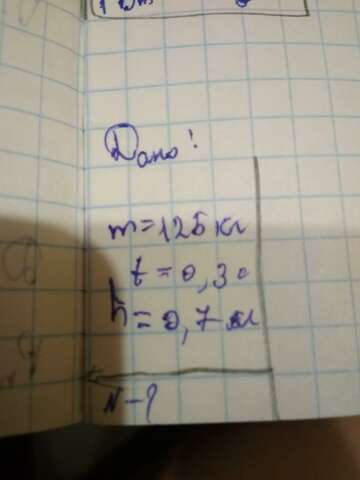 Дано!
m=125 кг
t=0,3 с
h=0,7 м
N-?